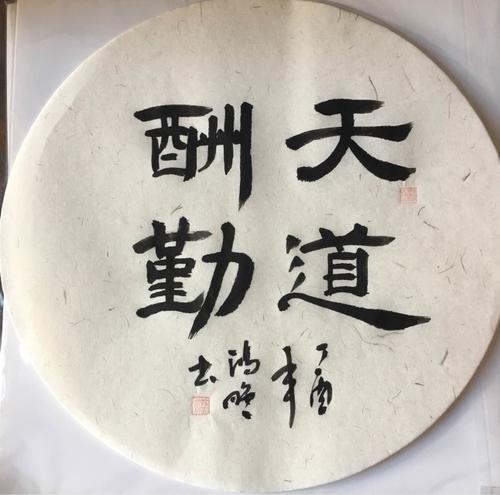 天道
酬勤
丁酉
年
书